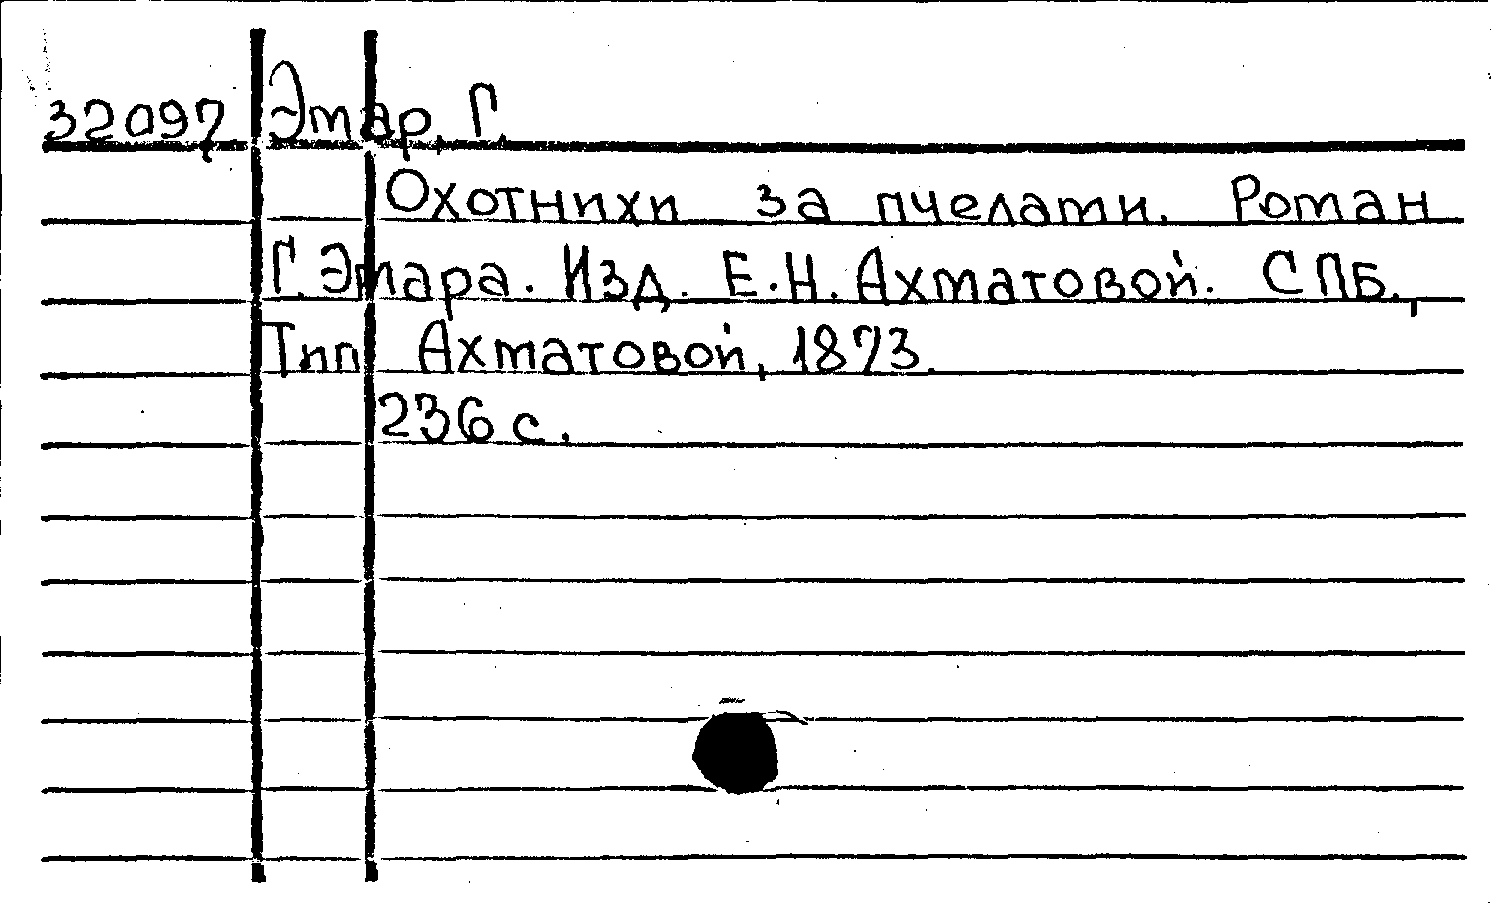 32097 Эмар, Г.
Охотники за пчелами. Роман
Г. Эмара. Изд. Е.Н. Ахматовой. СПБ.,
Тип Ахматовой, 1873.
236 с.